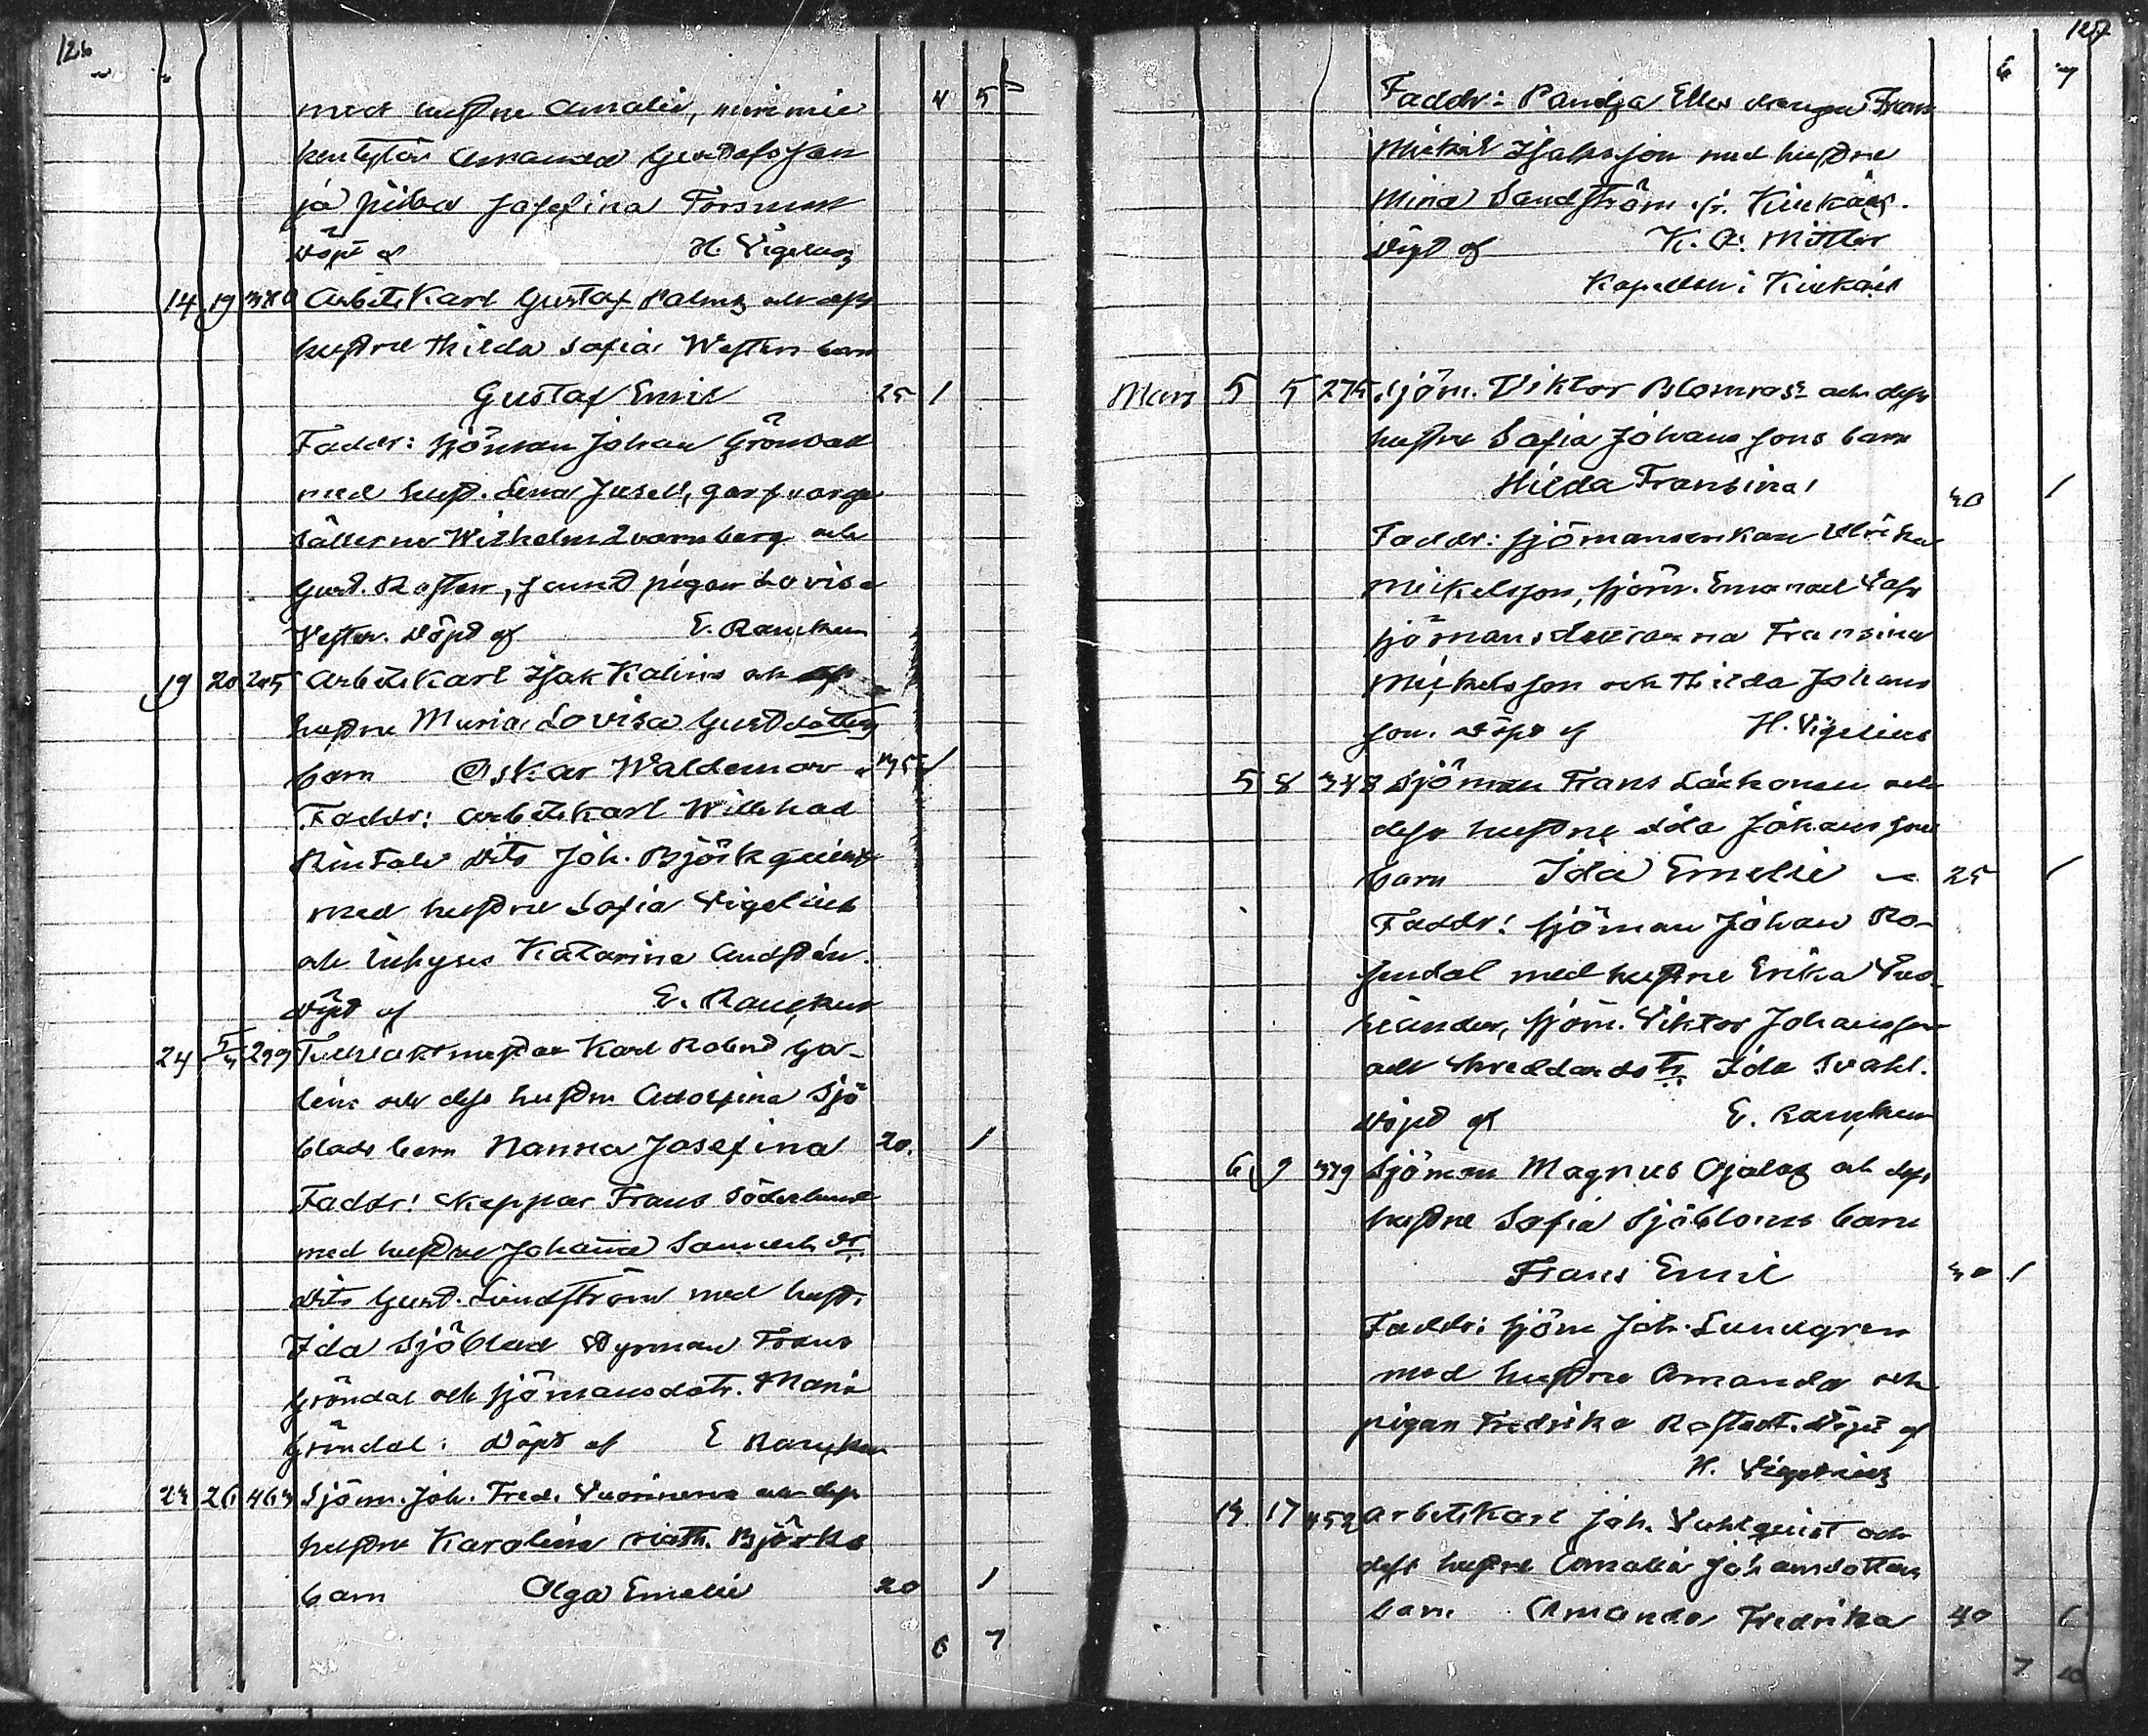 126
4 5
med hustrun Amalia, minnie
Amanda Gustafsson
ja piika Josefina Forsman
Döpt af H. Vigelius
14 19 380 Arbetskarl Gustaf Palmg och dess
hustru Thilda Sofia Westers barn
Gustaf Emil 25 1
Faddr: sjöman Johan Grönvall
med hust. Lena Jusell, garfvarge
sällerne Wilhelm Qvarnberg och
Gust. Rosten, samt pigan Lovisa
Vesten. Döpt af E. Rancken
19 20 245 Arbetskarl Isak Kalins och dess
hustru Maria Lovisa Gustdotters
barn Oskar Waldemar 35 1
Faddr: arbetskarl Willehad
Rintala Dito Joh. Björkquist
med hustru Sofia Vigelius
och Inhyses Katarina Andstén.
Döpt af E. Rancken
24 5/3 299 Karl Robert Ga-
leins och dess hustru Adolfina Sjö
blads barn Nanna Josefina 20. 1
Faddr: skeppar Frans Söderlund
med hustru Johanna Samuelsdr.
Dito Gust. Lindström med hust.
Ida Sjöblad Styrman Frans
Gröndal och sjömansdotr. Maria
Gröndal. Döpt af E Rancken
23 26 463 Sjöm. Joh. Fred. Vuorinens och dess
hustru Karolina Math. Björks
barn Olga Emelie 20 1
6 7
127
6 7
Faddr: drengen Frans
Mickel Isaksson med hustru
Mina Sandström fr. Kiukais.
Döpt af K. A. Mittler
Kapellan i Kiukais
Mars 5 5 275 Sjöm. Viktor Blomrost och dess
hustru Sofia Johanssons barn
Hilda Fransina 30 1
Faddr: sjömansenkan Ulrika
Mickelsson, sjöm. Emanuel
sjömansdöttrarna Fransina
Mickelsson och Thilda Johans
son. Döpt af H. Vigelius
5 8 348 Sjöman Frans Laxonen och
dess hustru Ida Johanssons
barn Ida Emelie 25 1
Faddr: sjöman Johan Ro-
sendal med hustru Erika
sjöm. Viktor Johansson
och skreddaredotr. Ida Svahl.
Döpt af E. Rancken
6 9 379 Sjöman Magnus Ojalas och dess
hustru Sofia Sjöbloms barn
Frans Emil 30 1
Faddr: sjöm Joh. Lundgren
med hustru Amanda och
pigan Fredrika Rostedt. Döpt af
H. Vigelius
13. 17 452 Arbetskarl Joh. Vahlquist och
dess hustru Amalia Johansdotters
barn Amanda Fredrika 40 1
7 10